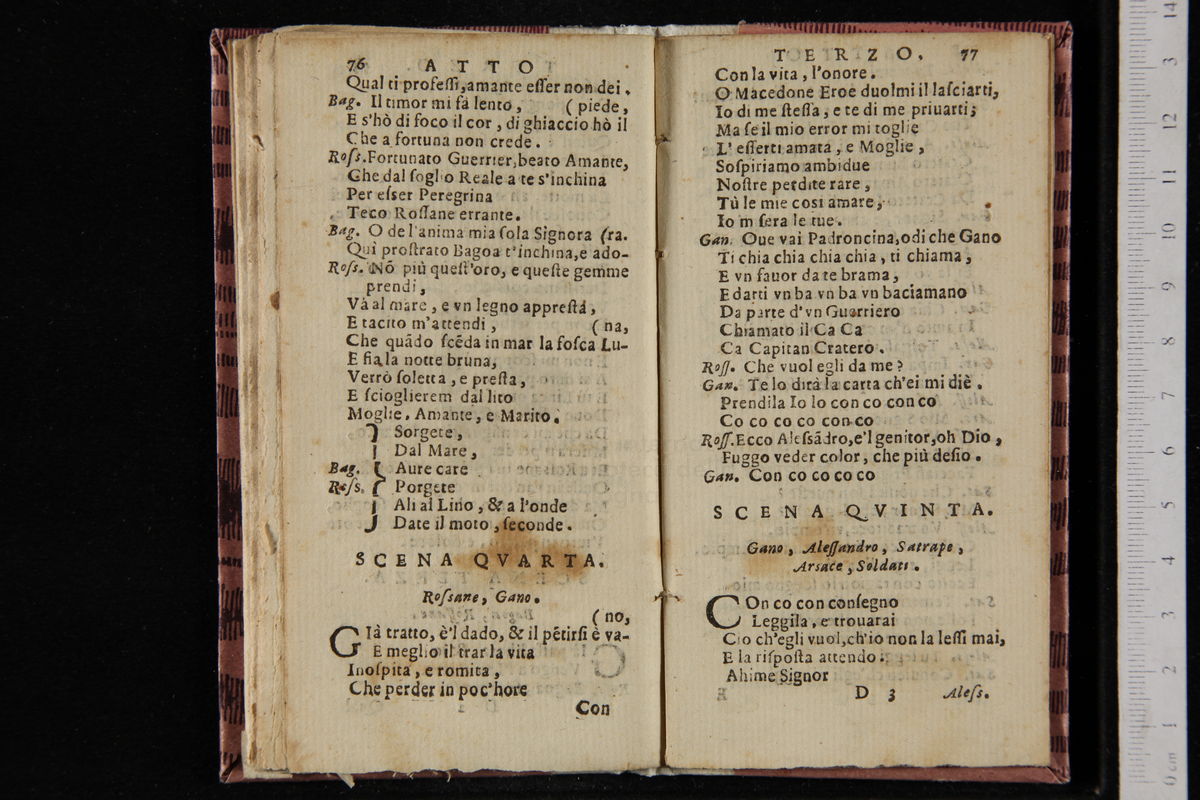 76 ATTO
Qual ti profeſſi,amante eſſer non dei.
Bag. Il timor mi fà lento, (piede,
E s'hò di foco il cor, di ghiaccio hò il
Che a fortuna non crede.
Roſs.Fortunato Guerrier,beato Amante,
Che dal ſoglio Reale a te s'inchina
Per eſser Peregrina
Teco Roſſane errante.
Bag. O de l'anima mia ſola Signora (ra.
Quì proſtrato Bagoa t'inchina,e ado-
Roſs. Nõ più queſt'oro, e queſte gemme
prendi,
Và al mare, e vn legno appreſtá,
E tacito m'attendi, (na,
Che quãdo ſcẽda in mar la foſca Lu-
E fia la notte bruna,
Verrò ſoletta, e preſta,
E ſcioglierem dal lito
Moglie, Amante, e Marito.
Sorgete,
Dal Mare,
Bag. Aure care
Roſs. Porgete
Ali al Lino, & a l'onde
Date il moto, ſeconde.
SCENA QVARTA.
Roſsane, Gano.
(no,
Già tratto, è'l dado, & il pẽtirſi è va-
E meglio il trar la vita
Inoſpita, e romita,
Che perder in poc'hore
Con
TERZO. 77
Con la vita, l'onore.
O Macedone Eroe duolmi il laſciarti,
Io di me ſteſſa, e te di me priuarti;
Ma ſe il mio error mi toglie
L'eſſerti amata, e Moglie,
Soſpiriamo ambidue
Noſtre perdite rare,
Tù le mie così amare,
Io m ſera le tue.
Gan. Oue vai Padroncina,odi che Gano
Ti chia chia chia chia, ti chiama,
E vn fauor da te brama,
E darti vn ba vn ba vn baciamano
Da parte d'vn Guerriero
Chiamato il Ca Ca
Ca Capitan Cratero.
Roſſ. Che vuol egli da me?
Gan. Te lo dirà la carta ch'ei mi diè.
Prendila Io lo con co con co
Co co co co con co
Roſſ.Ecco Aleſsãdro,e'l genitor,oh Dio,
Fuggo veder color, che più deſio.
Gan. Con co co co co
SCENA QVINTA.
Gano, Aleſſandro, Satrape,
Arsace, Soldati.
Con co con conſegno
Leggila, e trouarai
Cio ch'egli vuol,ch'io non la leſſi mai,
E la riſpoſta attendo.
Ahime Signor
D 3 Aleſs.